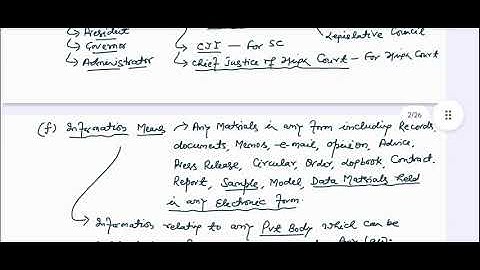 ↳ President
↳ Governor
↳ Administrator
Legislative Council
↳ CJI — For SC
↳ Chief Justice of High Court — For High Court
2/26
(f) Information Means → Any Materials in any form including Records,
documents, Memos, e-mail, opinion, Advice,
Press Release, Circular, Order, logbook, Contract,
Report, Sample, Model, Data Materials held
in any Electronic Form.
↳ Information relating to any Pvt Body which can be